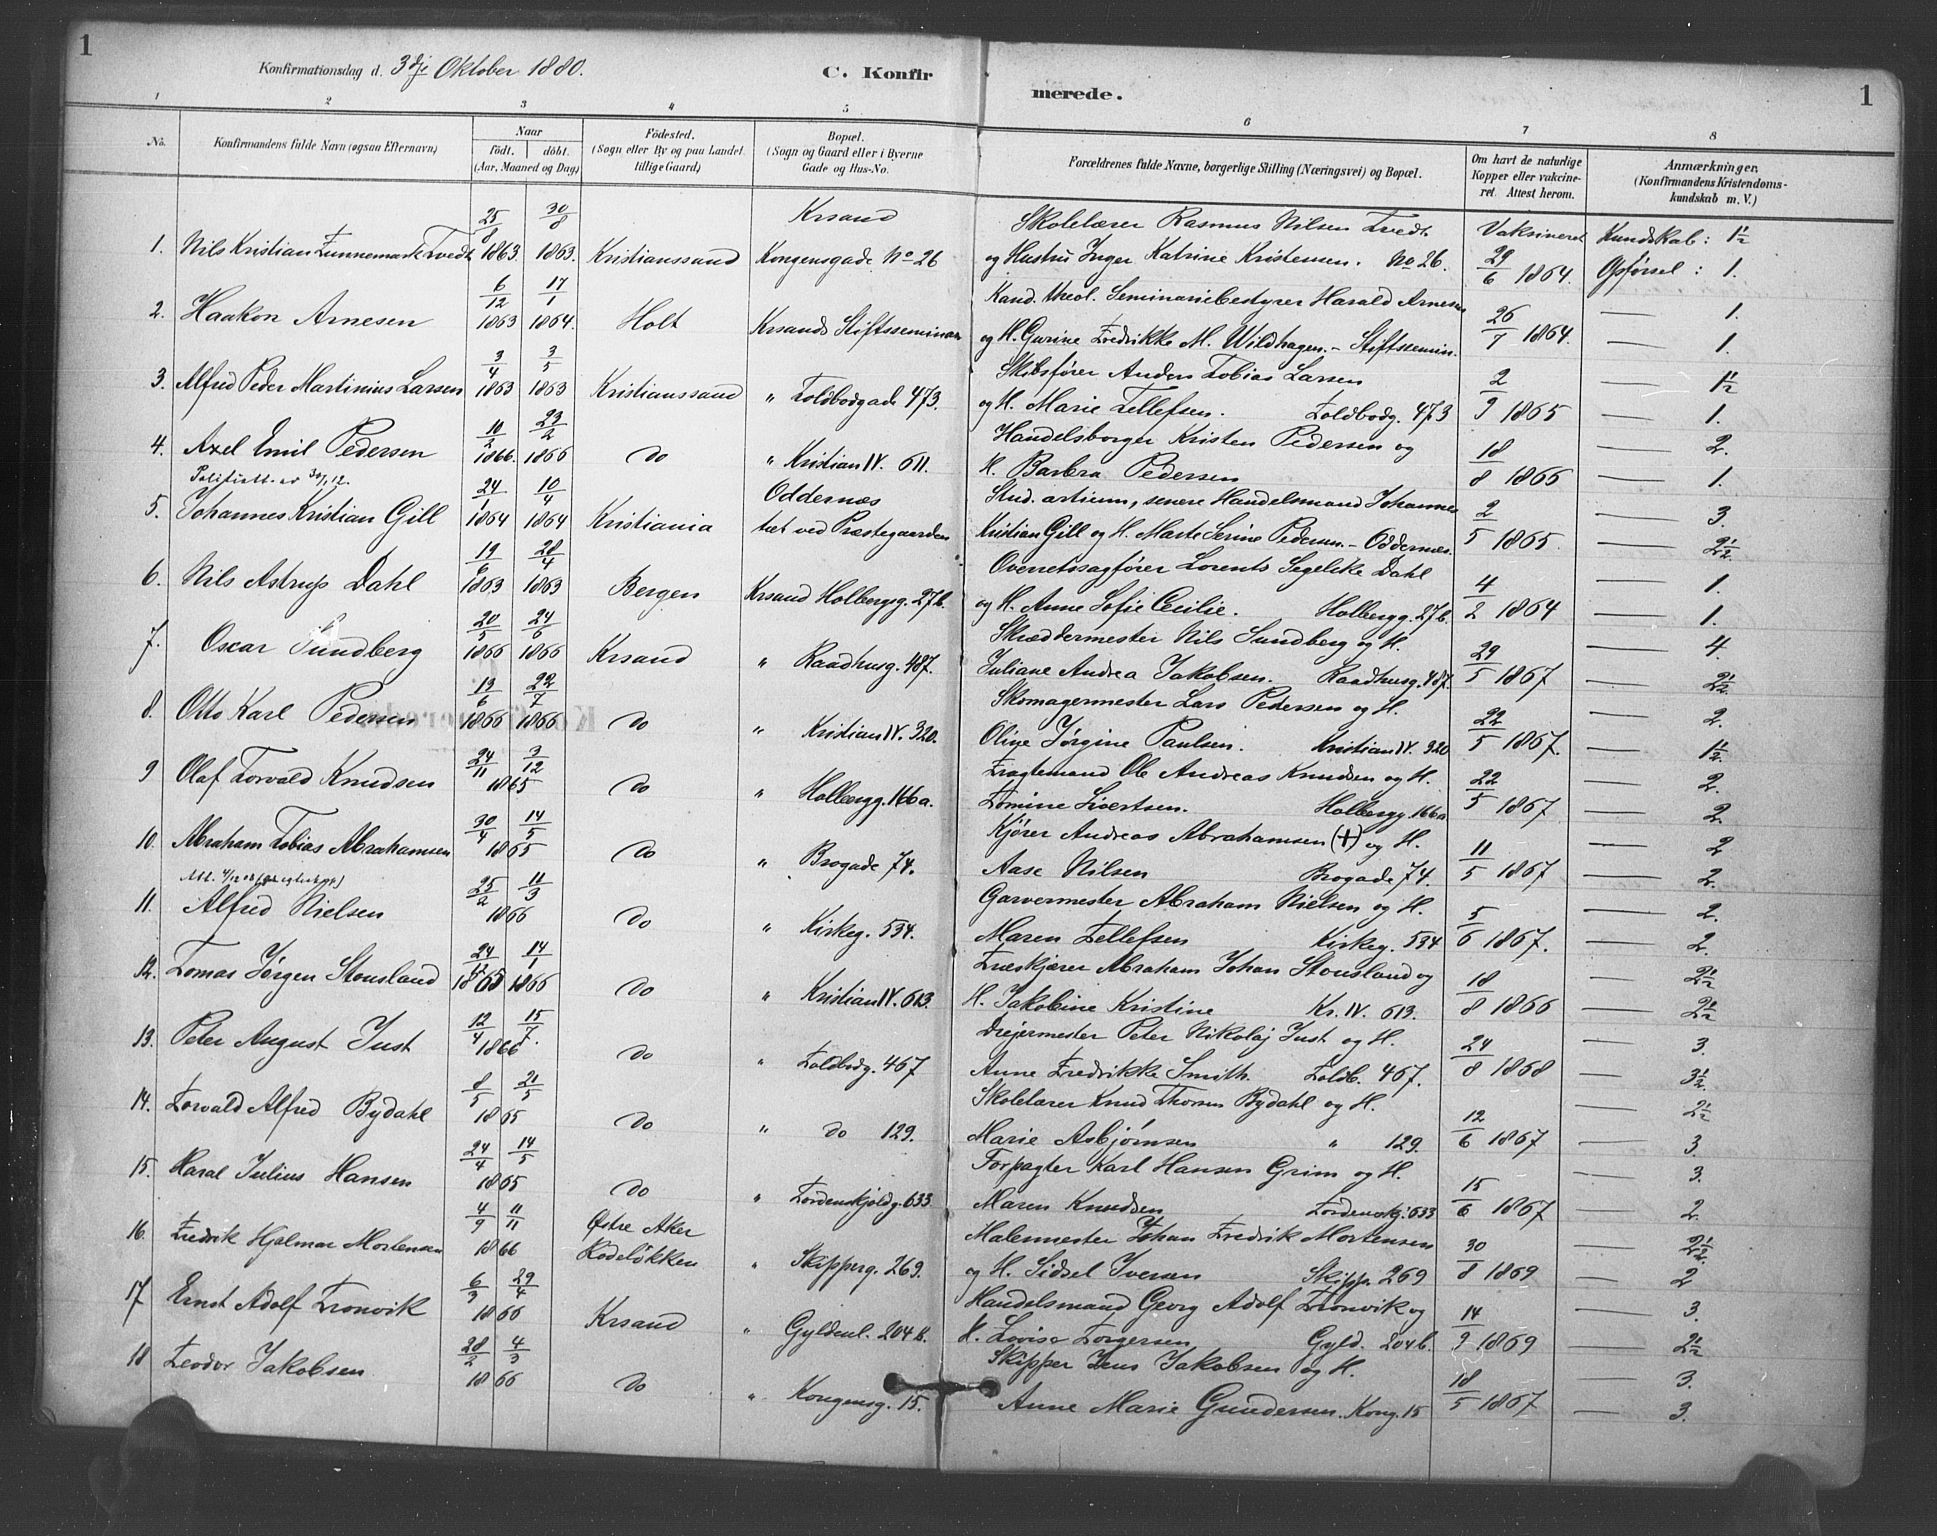 1
Konfirmationsdag d. 3dje Oktober 1880.
C. Konfir
merede.
1
1 2 3 4 5 6 7 8
No.
Konfirmandens fulde Navn (ogsaa Efternavn)
Naar
födt. döbt.
(Aar, Maaned og Dag)
Födested.
(Sogn eller By og paa Landet
tillige Gaard)
Bopæl.
(Sogn og Gaard eller i Byerne
Gade og Hus-No.
Forældrenes fulde Navne, borgerlige Stilling (Næringsvei) og Bopæl.
Om havt de naturlige
Kopper eller vakcine-
ret. Attest herom.
Anmærkninger.
(Konfirmandens Kristendoms-
kundskab m. V.)
25/8 30/8 Krsand Skolelærer Rasmus Nilsen Tvedt Vaksineret Kundskab: 1½
1. Nils Kristian Tunnemark Tvedt 1863. 1863. Kristianssand Kongensgade No 26 og Hustru Inger Katrine Kristensen. No 26. 29/6 1864. Opførsel: 1.
6/12 17/1 Kand. theol. Seminariebestyrer Harald Arnesen — 1.
2. Haakon Arnesen 1863 1864. Holt Krsands Stiftsseminar og H. Gurine Fredrikke M. Wildhagen. - Stiftssemin. 26/7 1864. — 1.
3/4 3/5 Skibsfører Anders Tobias Larsen — 1½
3. Alfred Peder Martinius Larsen 1863 1863 Kristianssand " Toldbodgade 473. og H. Marie Tellefsen. Toldbodg. 473 2/9 1865 — 1.
10/2 23/2 Handelsborger Kristen Pedersen og — 2.
4. Axel Emil Pedersen 1866. 1866 do " Kristian IV. 611. H. Barbra Pedersen 18/8 1866 — 1.
24/1 10/4 Oddernæs Stud. artium, senere Handelsmand Johannes — 3.
5. Johannes Kristian Gill 1864 1864 Kristiania tæt ved Præstegaarden Kristian Gill og H. Marte Serine Pedersen. - Oddernæs. 2/5 1865. — 2½.
19/ 28/4 Overretssagfører Lorents Segelcke Dahl — 1.
6. Nils Astrup Dahl 1863 1863 Bergen Krsand Holbergsg. 27b. og H. Anne Sofie Cecilie. Holbergg. 27b. 4/2 1864 — 1.
20/5 24/6 Skræddermester Nils Sundberg og H. — 4.
7. Oscar Sundberg 1866 1866 Krsand " Raadhusg. 487. Juliane Andrea Jakobsen. Raadhusg. 487. 29/5 1867 — 2½
13/6 22/7 Skomagermester Lars Pedersen og H. — 2.
8. Otto Karl Pedersen 1866 1866 do " Kristian IV. 320. Oline Jørgine Paulsen. Kristian IV. 320 22/5 1867. — 1½.
24/11 3/12 Fragtemand Ole Andreas Knudsen og H. — 2.
9 Olaf Torvald Knudsen 1865 do " Holbergg. 166a. Tomine Sivertsen. Holbergg. 166a 22/5 1867. — 2.
30/4 14/5 Kjører Andreas Abrahamsen (†) og H. — 2
10. Abraham Tobias Abrahamsen 1865 do " Brogade 74. Aase Nilsen Brogade 74. 11/5 1867 — 2.
25/2 11/3 Garvermester Abraham Nielsen og H. — 2.
11. Alfred Nielsen 1866 do " Kirkeg. 534. Maren Tellefsen Kirkeg. 534 5/6 1867. — 2.
24/ 14/1 Træskjærer Abraham Johan Stousland og — 2½
12. Tomas Jørgen Stousland 1865 1866 do " Kristian IV. 613. H. Jakobine Kristine Kr. IV. 613. 18/8 1866 — 2½
12/4 15/7. Drejermester Peter Nikolaj Just og H. — 3.
13. Peter August Just 1866 do " Toldbodg. 467 Anne Fredrikke Smith. Toldb. 467. 24/8 1868 — 3½.
8/5 21/5 Skolelærer Knud Thorsen Bydahl og H. — 2½
14. Torvald Alfred Bydahl 1865 do " do 129. Marie Asbjørnsen " 129. 12/6 1867 — 3.
24/4 14/5 Forpagter Karl Hansen Grim og H. — 3.
15. Karal Julius Hansen 1865 do " Tordenskjoldg. 633 Maren Knudsen Tordenskj. 633 15/6 1867 — 2.
4/9 11/11 Østre Aker Malermester Johan Fredrik Mortensen — 2½.
16. Fredrik Hjalmar Mortensen 1866 Rodeløkken " Skipperg. 269. og H. Sidsel Iversen Skipp. 269 30/8 1869 — 2
6/3 29/4 Handelsmand Georg Adolf Tronvik og — 3.
17 Ernst Adolf Tronvik 1866 Krsand " Gyldenl. 204b. H. Lovise Torgersen Gyld. 204b. 14/9 1869 — 2½
28/2 4/3 Skipper Jens Jakobsen og H. — 3.
18 Teodor Jakobsen 1866 do " Kongensg. 15. Anne Marie Gundersen. Kong. 15 18/5 1867 — 3.